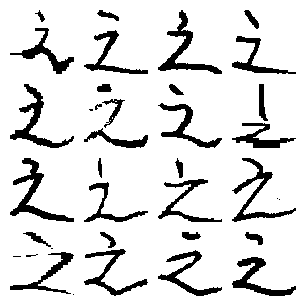 之之之之
之之之之
之之之之
之之之之